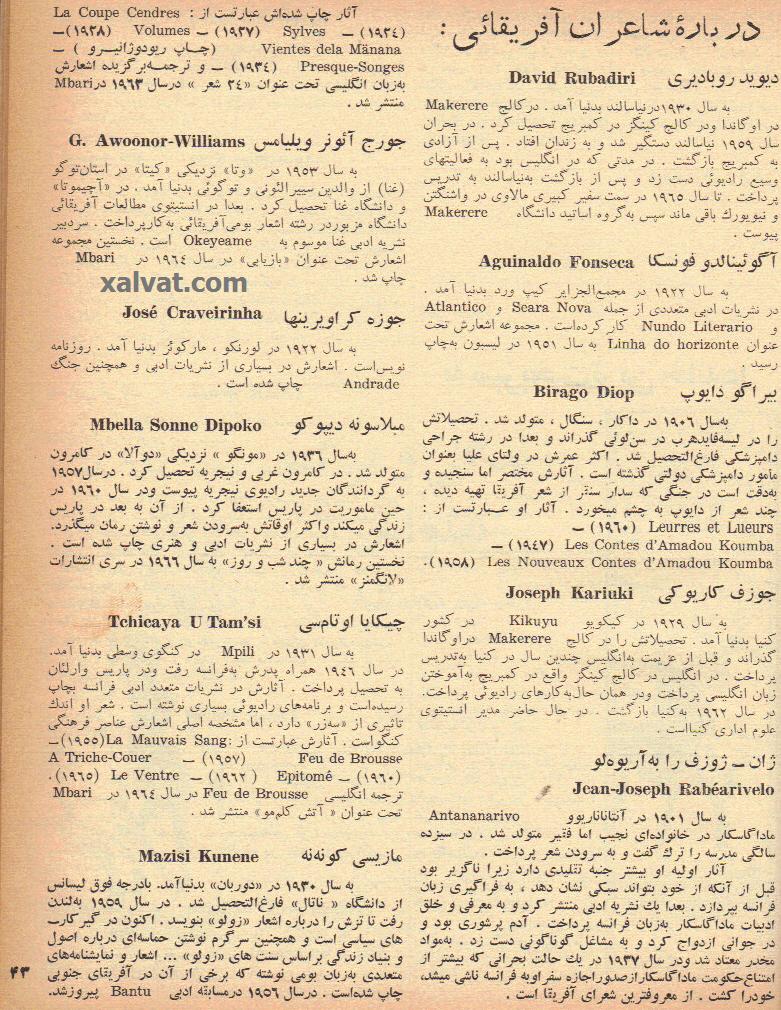 دربارهٔ شاعران آفریقائی :
دیوید روبادیری David Rubadiri
به سال ۱۹۳۰ درنیاسالند بدنیا آمد . درکالج Makerere
در اوگاندا ودر کالج کینگز در کمبریج تحصیل کرد . در بحران
سال ۱۹۵۹ نیاسالند دستگیر شد و به زندان افتاد . پس از آزادی
به کمبریج بازگشت . در مدتی که در انگلیس بود به فعالیتهای
وسیع رادیوئی دست زد و پس از بازگشت به‌نیاسالند به تدریس
پرداخت . تا سال ۱۹۶۵ در سمت سفیر کبیری مالاوی در واشنگتن
و نیویورک باقی ماند سپس به‌گروه اساتید دانشگاه Makerere
پیوست .
آگوئینالدو فونسکا Aguinaldo Fonseca
به سال ۱۹۲۲ در مجمع‌الجزایر کیپ ورد بدنیا آمد .
در نشریات ادبی متعددی از جمله Seara Nova و Atlantico
و Nundo Literario کار کرده‌است . مجموعه اشعارش تحت
عنوان Linha do horizonte به سال ۱۹۵۱ در لیسبون به‌چاپ
رسید .
بیراگو دایوپ Birago Diop
به‌سال ۱۹۰۶ در داکار ، سنگال ، متولد شد . تحصیلاتش
را در لیسه‌فایدهرب در سن‌لوئی گذراند و بعدا در رشته جراحی
دامپزشکی فارغ‌التحصیل شد . اکثر عمرش در ولتای علیا بعنوان
مامور دامپزشکی دولتی گذشته است . آثارش مختصر اما سنجیده و
به‌دقت است در جنگی که سدار سنقر از شعر آفریقا تهیه دیده ،
چند شعر از دایوپ به چشم میخورد . آثار او عبارتست از :
Leurres et Lueurs (۱۹۶۰) —
Les Contes d'Amadou Koumba (۱۹۴۷) —
Les Nouveaux Contes d'Amadou Koumba (۱۹۵۸).
جوزف کاریوکی Joseph Kariuki
به سال ۱۹۲۹ در کیکویو Kikuyu در کشور
کنیا بدنیا آمد . تحصیلاتش را در کالج Makerere دراوگاندا
گذراند و قبل از عزیمت به‌انگلیس چندین سال در کنیا به‌تدریس
پرداخت . در انگلیس در کالج کینگز واقع در کمبریج به‌آموختن
زبان انگلیسی پرداخت ودر همان حال‌به‌کارهای رادیوئی پرداخت.
در سال ۱۹۶۲ به‌کنیا بازگشت . در حال حاضر مدیر انستیتوی
علوم اداری کنیااست .
ژان – ژوزف را به‌آریوه‌لو
Jean-Joseph Rabéarivelo
به سال ۱۹۰۱ در آنتاناناریوو Antananarivo
ماداگاسکار در خانواده‌ای نجیب اما فقیر متولد شد . در سیزده
سالگی مدرسه را ترك گفت و به سرودن شعر پرداخت .
آثار اولیه او بیشتر جنبه تقلیدی دارد زیرا ناگزیر بود
قبل از آنکه از خود بتواند سبکی نشان دهد ، به فراگیری زبان
فرانسه بپردازد . بعدا یك نشریه ادبی منتشر کرد و به معرفی و خلق
ادبیات ماداگاسکار به‌زبان فرانسه پرداخت . آدم پرشوری بود و
در جوانی ازدواج کرد و به مشاغل گوناگونی دست زد . به‌مواد
مخدر معتاد شد ودر سال ۱۹۳۷ در یك حالت بحرانی که بیشتر از
امتناع‌حکومت ماداگاسکارازصدوراجازه سفراوبه فرانسه ناشی میشد،
خودرا کشت . از معروفترین شعرای آفریقا است .
آثار چاپ شده‌اش عبارتست از : La Coupe Cendres
(۱۹۲۴) — Sylves (۱۹۲۷) — Volumes (۱۹۲۸)—
Vientes dela Mänana (چاپ ریودوژانیرو ) —
Presque-Songes (۱۹۳۴) — و ترجمه‌برگزیده اشعارش
به‌زبان انگلیسی تحت عنوان «۲۴ شعر » درسال ۱۹۶۳ درMbari
منتشر شد .
جورج آئونر ویلیامس G. Awoonor-Williams
به سال ۱۹۵۳ در «وتا» نزدیکی «کیتا» در استان‌توگو
(غنا) از والدین سییرالئونی و توگوئی بدنیا آمد . در «آچیموتا»
و دانشگاه غنا تحصیل کرد . بعدا در انستیتوی مطالعات آفریقائی
دانشگاه مزبوردر رشته اشعار بومی‌آفریقائی به‌کارپرداخت . سردبیر
نشریه ادبی غنا موسوم به Okeyeame است . نخستین مجموعه
اشعارش تحت عنوان «بازیابی» در سال ۱۹۶۴ در Mbari
چاپ شد .
xalvat.com
جوزه کراویرینها José Craveirinha
به سال ۱۹۲۲ در لورنکو ، مارکوئز بدنیا آمد . روزنامه
نویس‌است . اشعارش در بسیاری از نشریات ادبی و همچنین جنگ
Andrade چاپ شده است .
مبلاسونه دیپوکو Mbella Sonne Dipoko
به‌سال ۱۹۳۶ در «مونگو » نزدیکی «دوآلا» در کامرون
متولد شد . در کامرون غربی و نیجریه تحصیل کرد . درسال۱۹۵۷
به گردانندگان جدید رادیوی نیجریه پیوست ودر سال ۱۹۶۰ در
حین ماموریت در پاریس استعفا کرد . از آن به بعد در پاریس
زندگی میکند واکثر اوقاتش به‌سرودن شعر و نوشتن رمان میگذرد.
اشعارش در بسیاری از نشریات ادبی و هنری چاپ شده است .
نخستین رمانش « چند شب و روز» به سال ۱۹۶۶ در سری انتشارات
«لانگمنز» منتشر شد .
چیکایا اوتام‌سی Tchicaya U Tam'si
به سال ۱۹۳۱ در Mpili در کنگوی وسطی بدنیا آمد.
در سال ۱۹۴۶ همراه پدرش به‌فرانسه رفت ودر پاریس وارلئان
به تحصیل پرداخت . آثارش در نشریات متعدد ادبی فرانسه بچاپ
رسیده‌است و برنامه‌های رادیوئی بسیاری نوشته است . شعر او اندك
تاثیری از «سه‌زر» دارد ، اما مشخصه اصلی اشعارش عناصر فرهنگی
کنگواست . آثارش عبارتست از :La Mauvais Sang(۱۹۵۵)—
Feu de Brousse (۱۹۵۷) — A Triche-Couer
(۱۹۶۰) — Epitomé (۱۹۶۲ ) — Le Ventre (۱۹۶۵).
ترجمه انگلیسی Feu de Brousse در سال ۱۹۶۴ در Mbari
تحت عنوان « آتش کلم‌مو» منتشر شد .
مازیسی کونه‌نه Mazisi Kunene
به سال ۱۹۳۰ در «دوربان» بدنیاآمد. بادرجه فوق لیسانس
از دانشگاه « ناتال» فارغ‌التحصیل شد . در سال ۱۹۵۹ به‌لندن
رفت تا تزش را درباره اشعار «زولو» بنویسد . اکنون در گیر کارب
های سیاسی است و همچنین سرگرم نوشتن حماسه‌ای درباره اصول
و بنیاد زندگی براساس سنت های «زولو» ... اشعار و نمایشنامه‌های
متعددی به‌زبان بومی نوشته که برخی از آن در آفریقای جنوبی
چاپ شده‌است . درسال ۱۹۵۶ درمسابقه ادبی Bantu پیروزشد.
۴۳